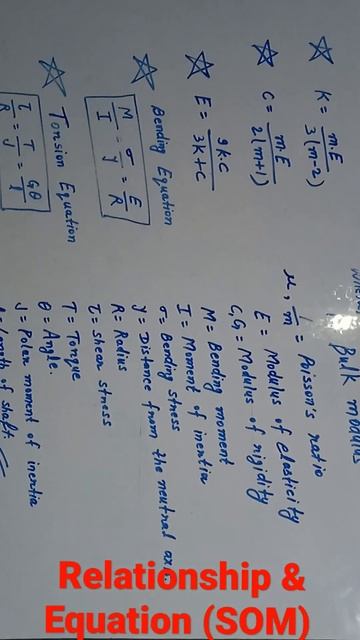 K = m.E / 3(m-2)
C = m.E / 2(m+1)
E = 9K.C / 3K+C
Bending Equation
M/I = σ/y = E/R
Torsion Equation
τ/R = T/J = Gθ/l
Bulk modulus
μ, 1/m = Poisson's ratio
E = Modulus of elasticity
C,G = Modulus of rigidity
M = Bending moment
I = Moment of inertia
σ = Bending stress
y = Distance from the neutral axis
R = Radius
τ = shear stress
T = Torque
θ = Angle.
J = Polar moment of inertia
l = Length of shaft.
Relationship &
Equation (SOM)